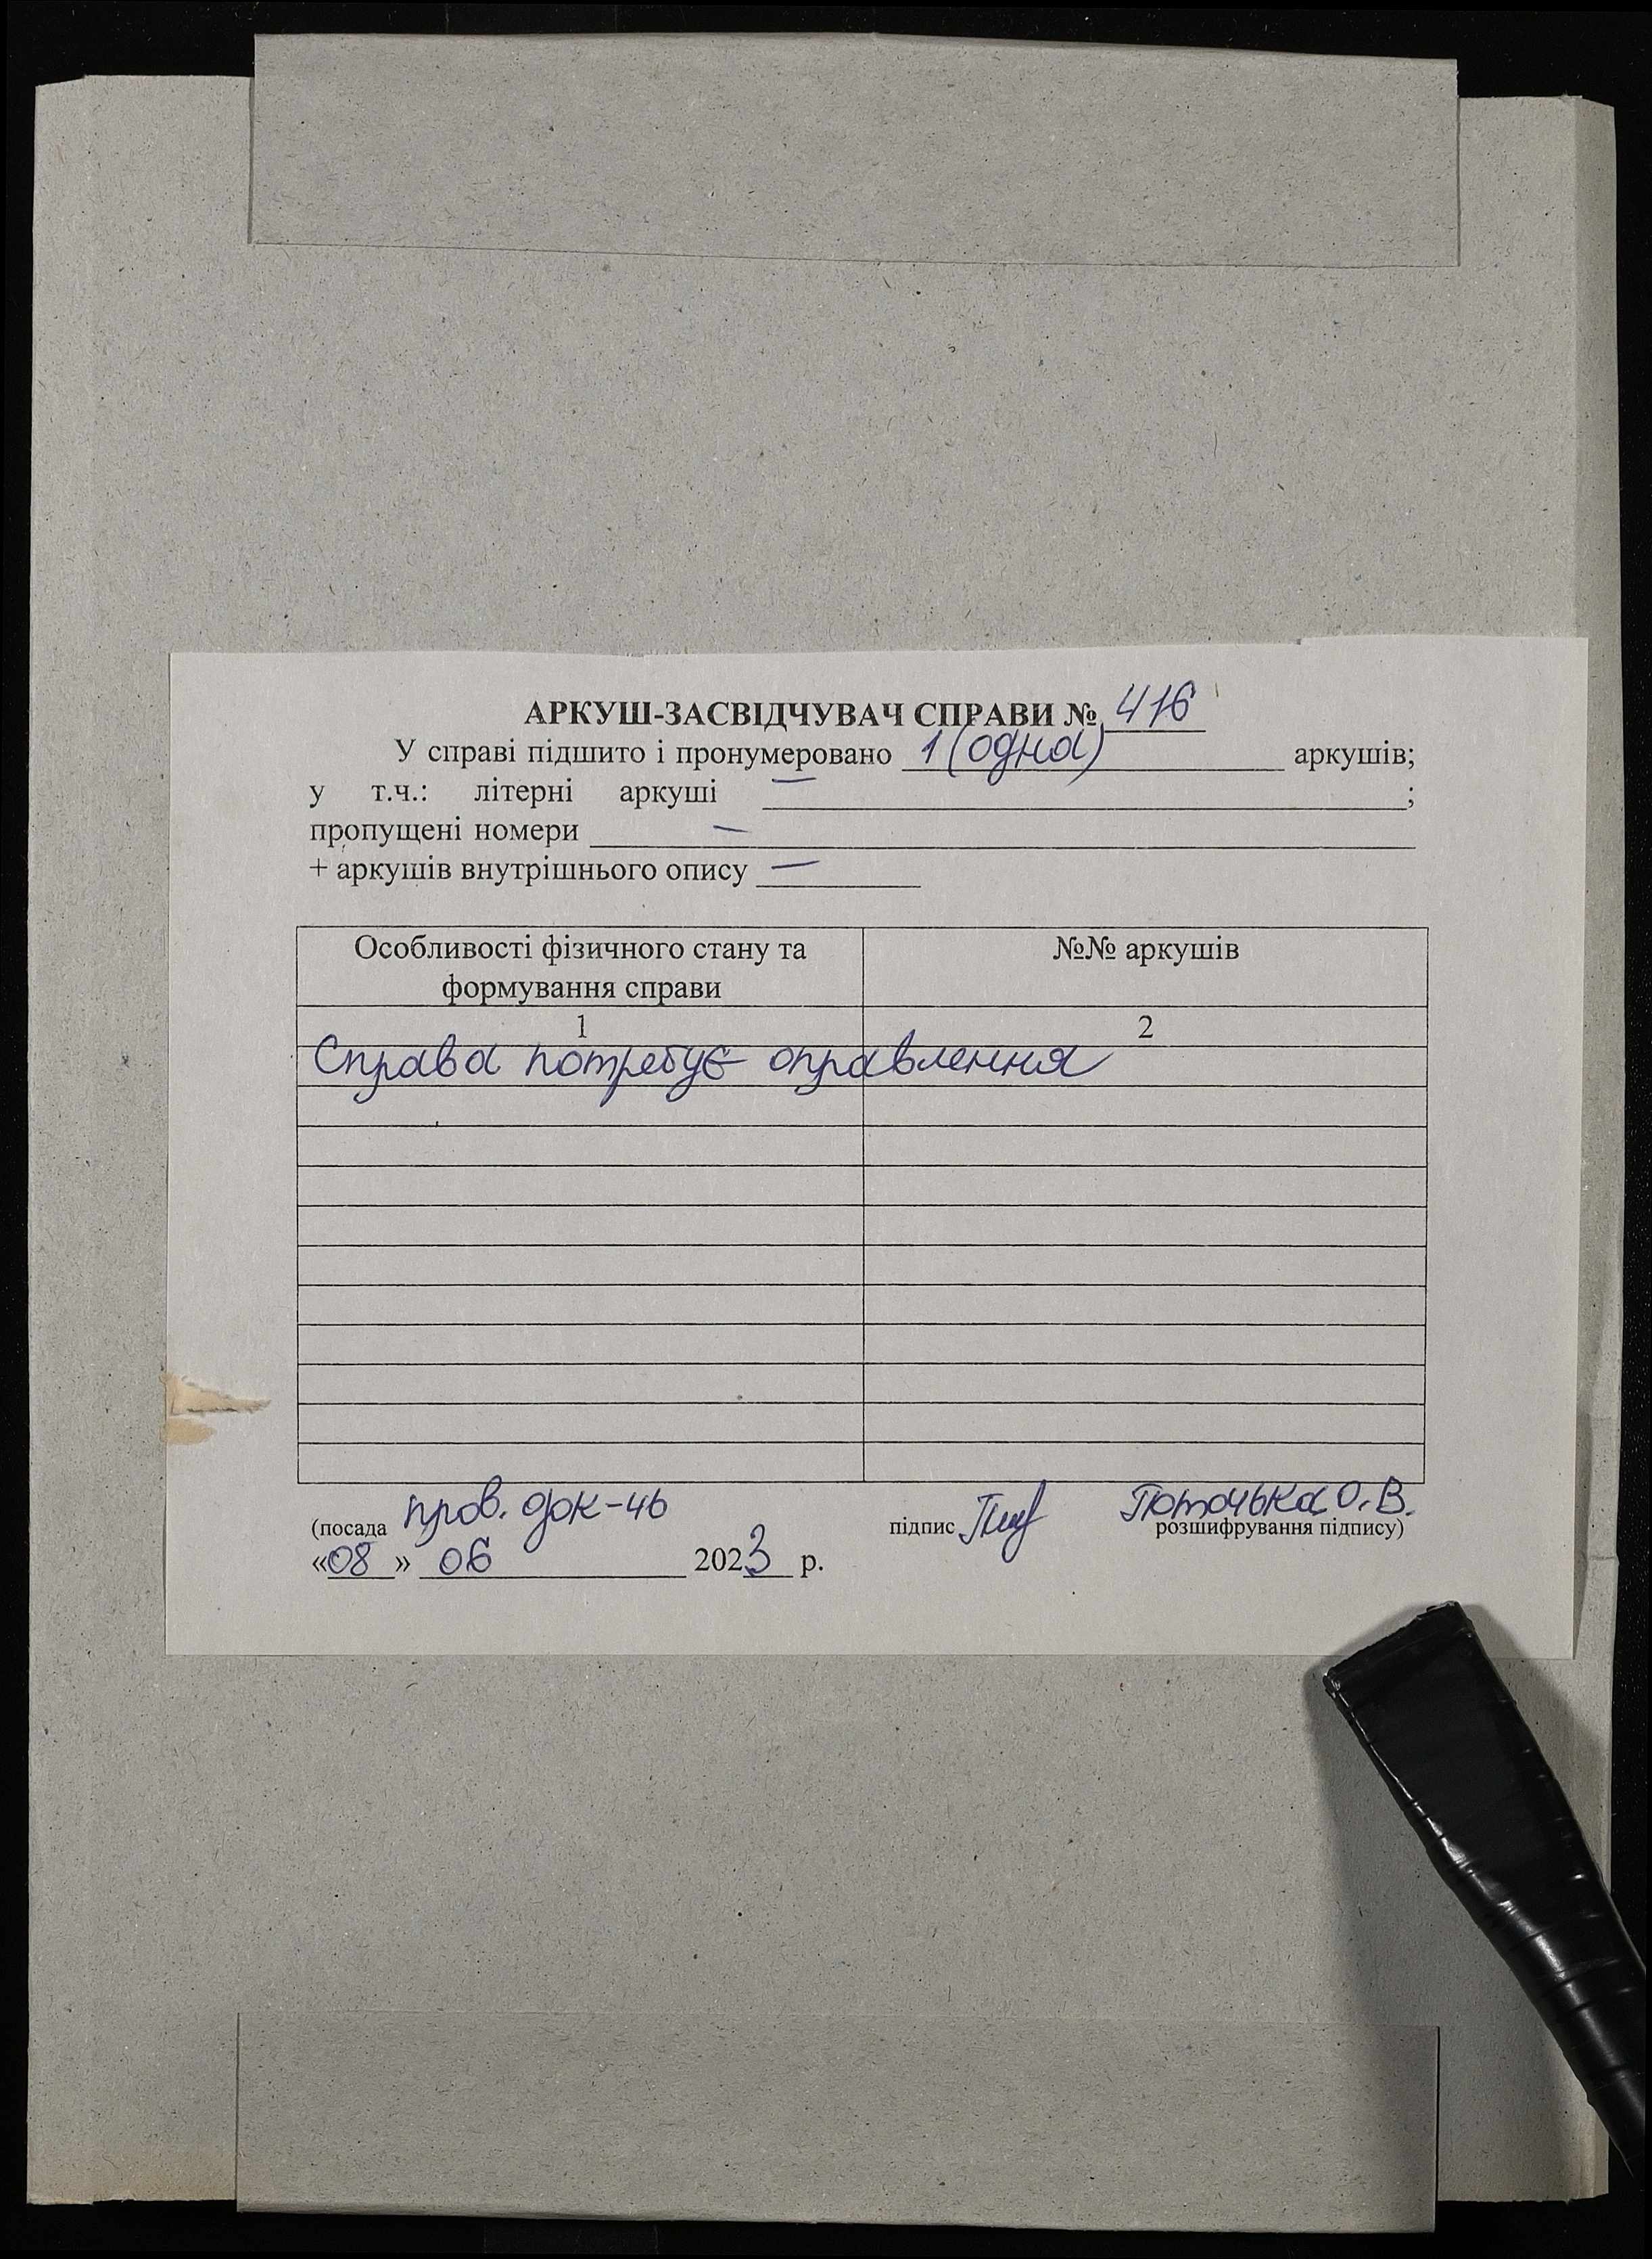 АРКУШ-ЗАСВІДЧУВАЧ СПРАВИ № 416
У справі підшито і пронумеровано 1 (одна) аркушів;
у т.ч.: літерні аркуші — ;
пропущені номери —
+ аркушів внутрішнього опису —
Особливості фізичного стану та формування справи
№№ аркушів
1 2
Справа потребує оправлення
(посада пров. док-чь підпис Поточька О.В. розшифрування підпису)
«08» 06 2023 р.